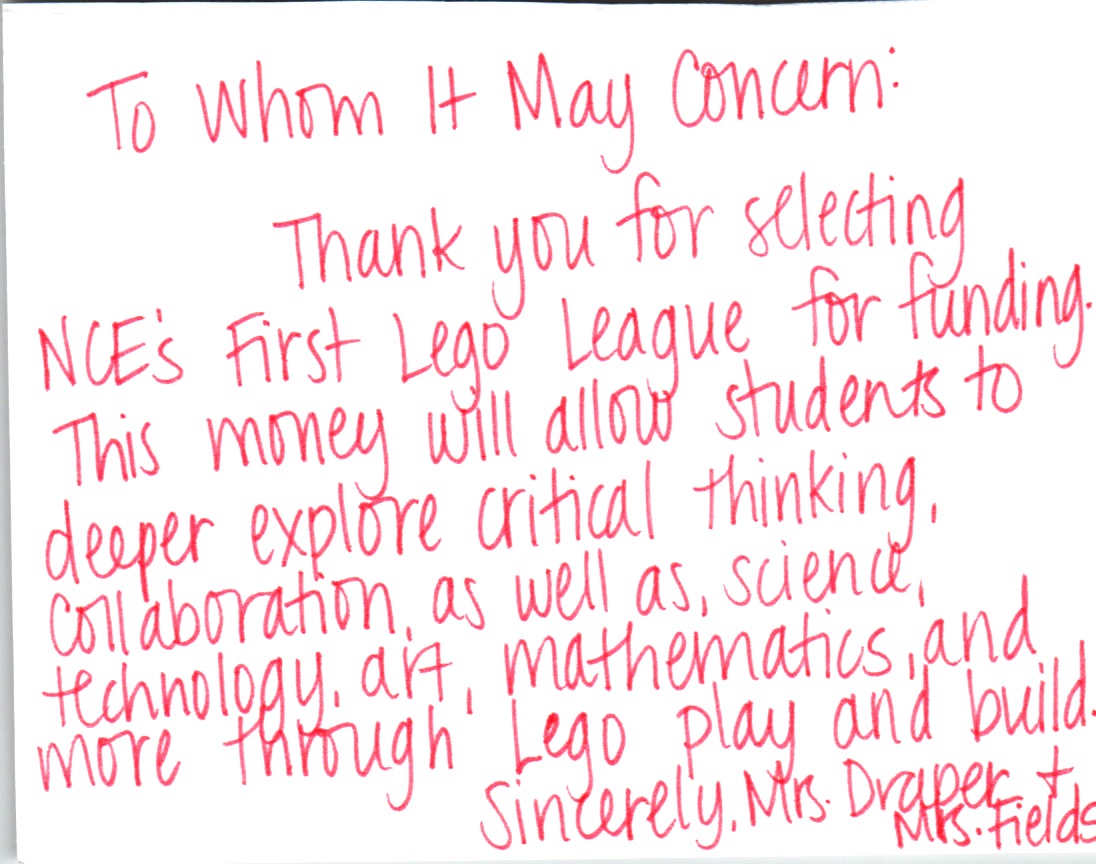 To Whom It May Concern:
Thank you for selecting
NCE's First Lego League for funding.
This money will allow students to
deeper explore critical thinking,
collaboration, as well as, science,
technology, art, mathematics, and
more through Lego play and build.
Sincerely, Mrs. Draper +
Mrs. Fields